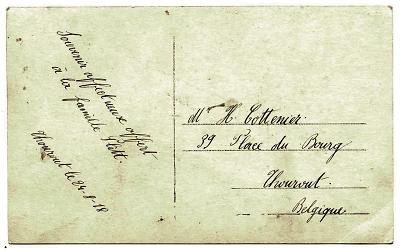 Souvenir affectueux offert
à la famille
Thourout le 24-1-18
Mr H Cottenier
39 Place du Bourg
Thourout.
Belgique